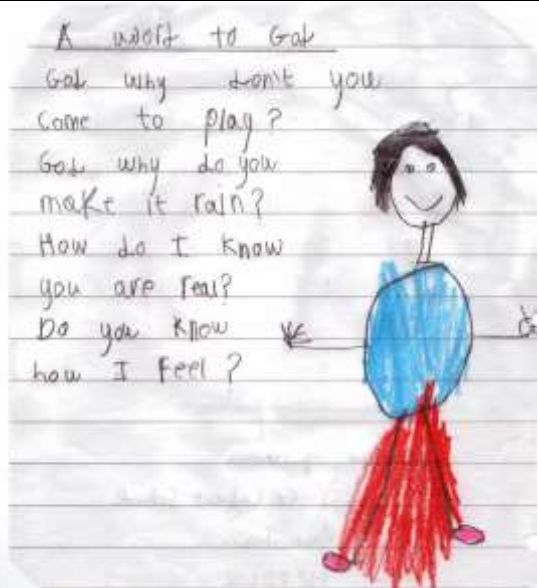 A word to God
God why don't you
Come to play?
God why do you
make it rain?
How do I know
you are real?
Do you know
how I feel?